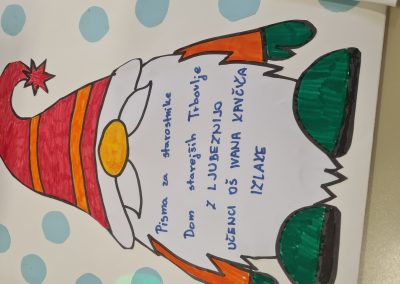 Pisma za starostnike
Dom starejših Trbovlje
Z LJUBEZNIJO
UČENCI OŠ IVANA KAVČIČA
IZLAKE